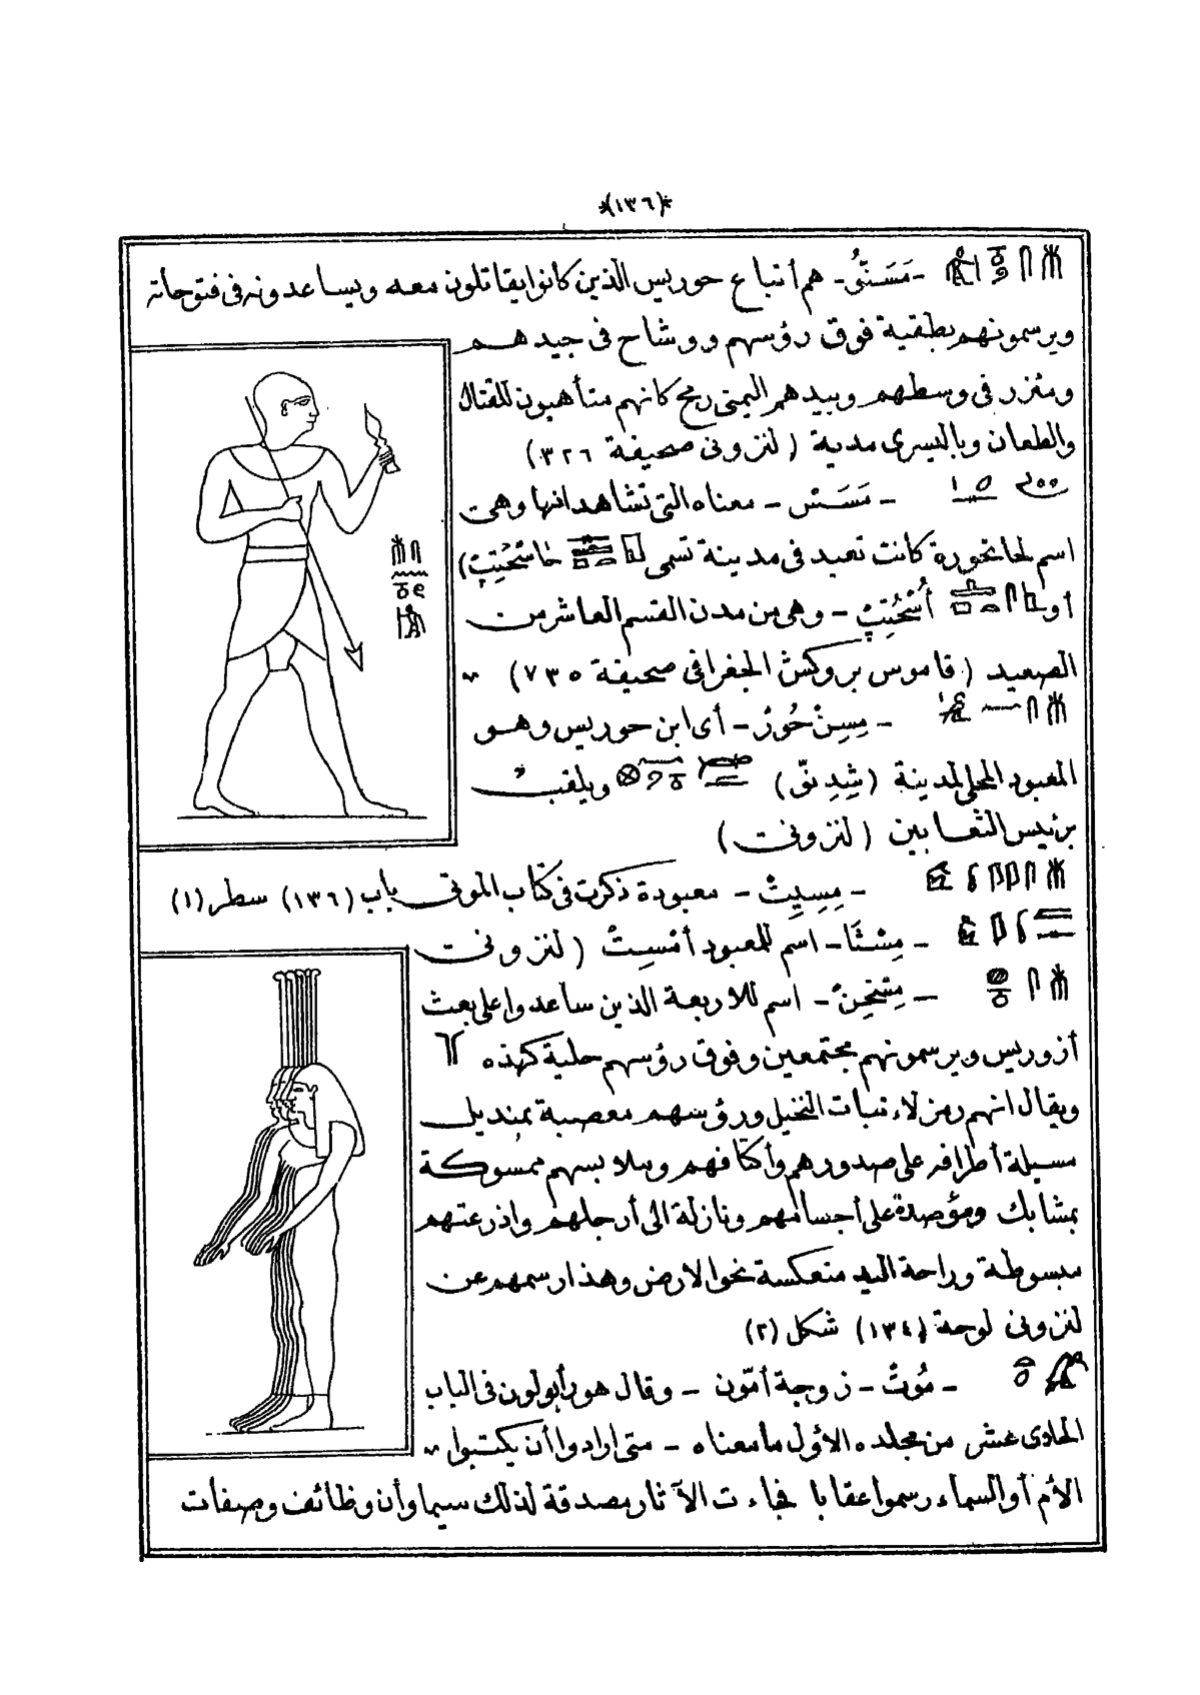 *(١٣٦)*
- مَسَنْتُو - هم أتباع حوريس الذين كانوا يقاتلون معه ويساعدونه فى فتوحاته
ويرسمونهم بطقية فوق رؤسهم ووشاح فى جيدهم
ومئزر فى وسطهم وبيدهم اليمنى رمح كانهم متأهبون للقتال
والطعان وباليسرى مدية (لنزونى صحيفة ٣٢٦)
- مَسَسْ - معناه التى تشاهد انها وهى
اسم لحاتحورة كانت تعبد فى مدينة تسمى
أو أُسْحُتِپْ - وهى من مدن القسم العاشر من
الصعيد (قاموس بروكش الجغرافى صحيفة ٧٣٥)
- مِسِنْ حُورْ - أى ابن حوريس وهو
المعبود المحلى لمدينة (شِدِنْ) ويلقب
برئيس الثعابين (لنزونى)
- مِسِيتْ - معبودة ذكرت فى كتاب الموتى باب (١٣٦) سطر (١)
- مِسْتَا - اسم للمعبود أمْسِتْ (لنزونى
- مِسْخِنْ - اسم للاربعة الذين ساعدوا على بعث
أزوريس ويرسمونهم مجتمعين وفوق رؤسهم حلية كهذه
ويقال انهم رمز لاء نبات النخيل ورؤسهم معصبة بمنديل
مسبلة أطرافه على صدورهم وأكتافهم وملابسهم ممسوكة
بمشابك ومؤصدة على أجسامهم ونازلة الى أرجلهم واذرعتهم
مبسوطة وراحة اليد منعكسة نحو الارض وهذا رسمهم عن
لنزونى لوحة (١٣٤) شكل (٢)
- مُوتْ - زوجة أمّون - وقال هورأپولون فى الباب
الحادى عشر من مجلده الاوّل ما معناه - متى ارادوا أن يكتبوا
الأم أو السماء رسموا عقابا فجاءت الآثار مصدقة لذلك سيما وأن وظائف وصفات